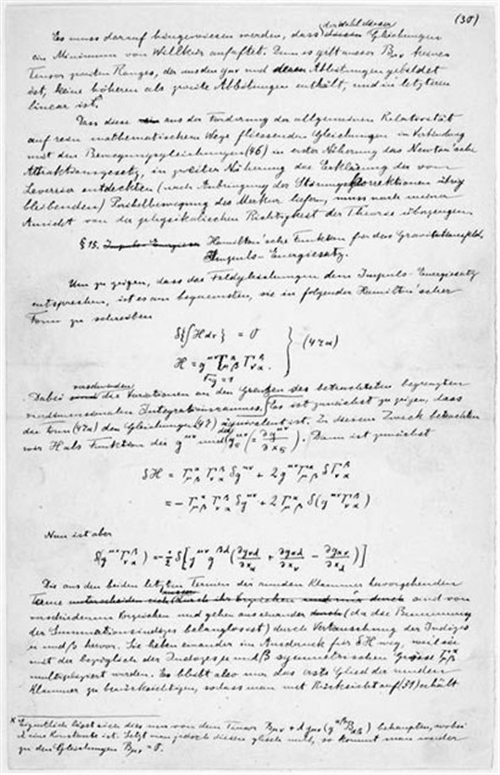 (30)
Es muss darauf hingewiesen werden, dass der Wahl dieser Gleichungen
ein Minimum von Willkür anhaftet. Denn es gibt ausser Bμν keinen
Tensor zweiten Ranges, der aus den gμν und deren Ableitungen gebildet
ist, keine höheren als zweite Ableitungen enthält, und in letzteren
linear ist*
Dass diese aus der Forderung der allgemeinen Relativität
auf rein mathematischem Wege fliessenden Gleichungen in Verbindung
mit den Bewegungsgleichungen (46) in erster Näherung das Newton'sche
Attraktionsgesetz, in zweiter Näherung die Erklärung der von
Leverrier entdeckten (nach Anbringung der Störungskorrektionen übrig
bleibenden) Perihelbewegung des Merkur liefern, muss nach meiner
Ansicht von der physikalischen Richtigkeit der Theorie überzeugen.
§ 15. Hamilton'sche Funktion für das Gravitationsfeld,
Impuls-Energiesatz.
Um zu zeigen, dass die Feldgleichungen dem Impuls-Energiesatz
entsprechen, ist es am bequemsten, sie in folgender Hamilton'scher
Form zu schreiben
δ{∫H dτ} = 0
H = g^μν Γ^α_μβ Γ^β_να
√-g = 1
} (47a)
Dabei verschwinden die Variationen an den Grenzen des betrachteten begrenzten
vierdimensionalen Integrationsraumes. Es ist zunächst zu zeigen, dass
die Form (47a) den Gleichungen (47) äquivalent ist. Zu diesem Zweck betrachten
wir H als Funktion der g^μν und g^μν_σ (= ∂g^μν/∂x_σ). Dann ist zunächst
δH = Γ^α_μβ Γ^β_να δg^μν + 2 g^μν Γ^α_μβ δΓ^β_να
= - Γ^α_μβ Γ^β_να δg^μν + 2 Γ^α_μβ δ(g^μν Γ^β_να)
Nun ist aber
δ(g^μν Γ^β_να) = -½ δ[g^μν g^βλ (∂g_νλ/∂x_α + ∂g_αλ/∂x_ν - ∂g_αν/∂x_λ)]
Die aus den beiden letzten Termen der runden Klammer hervorgehenden
Terme sind von
verschiedenem Vorzeichen und gehen auseinander (da die Benennung
der Summationsindizes belanglos ist) durch Vertauschung der Indizes
μ und β hervor. Sie heben einander im Ausdruck für δH weg, weil sie
mit der bezüglich der Indizes μ und β symmetrischen Grösse Γ^α_μβ
multipliziert werden. Es bleibt also nur das erste Glied der runden
Klammer zu berücksichtigen, sodass man mit Rücksicht auf (31) erhält
* Eigentlich lässt sich dies nur von dem Tensor Bμν + λ gμν (g^αβ Bαβ) behaupten, wobei
λ eine Konstante ist. Setzt man jedoch diesen gleich null, so kommt man wieder
zu den Gleichungen Bμν = 0.